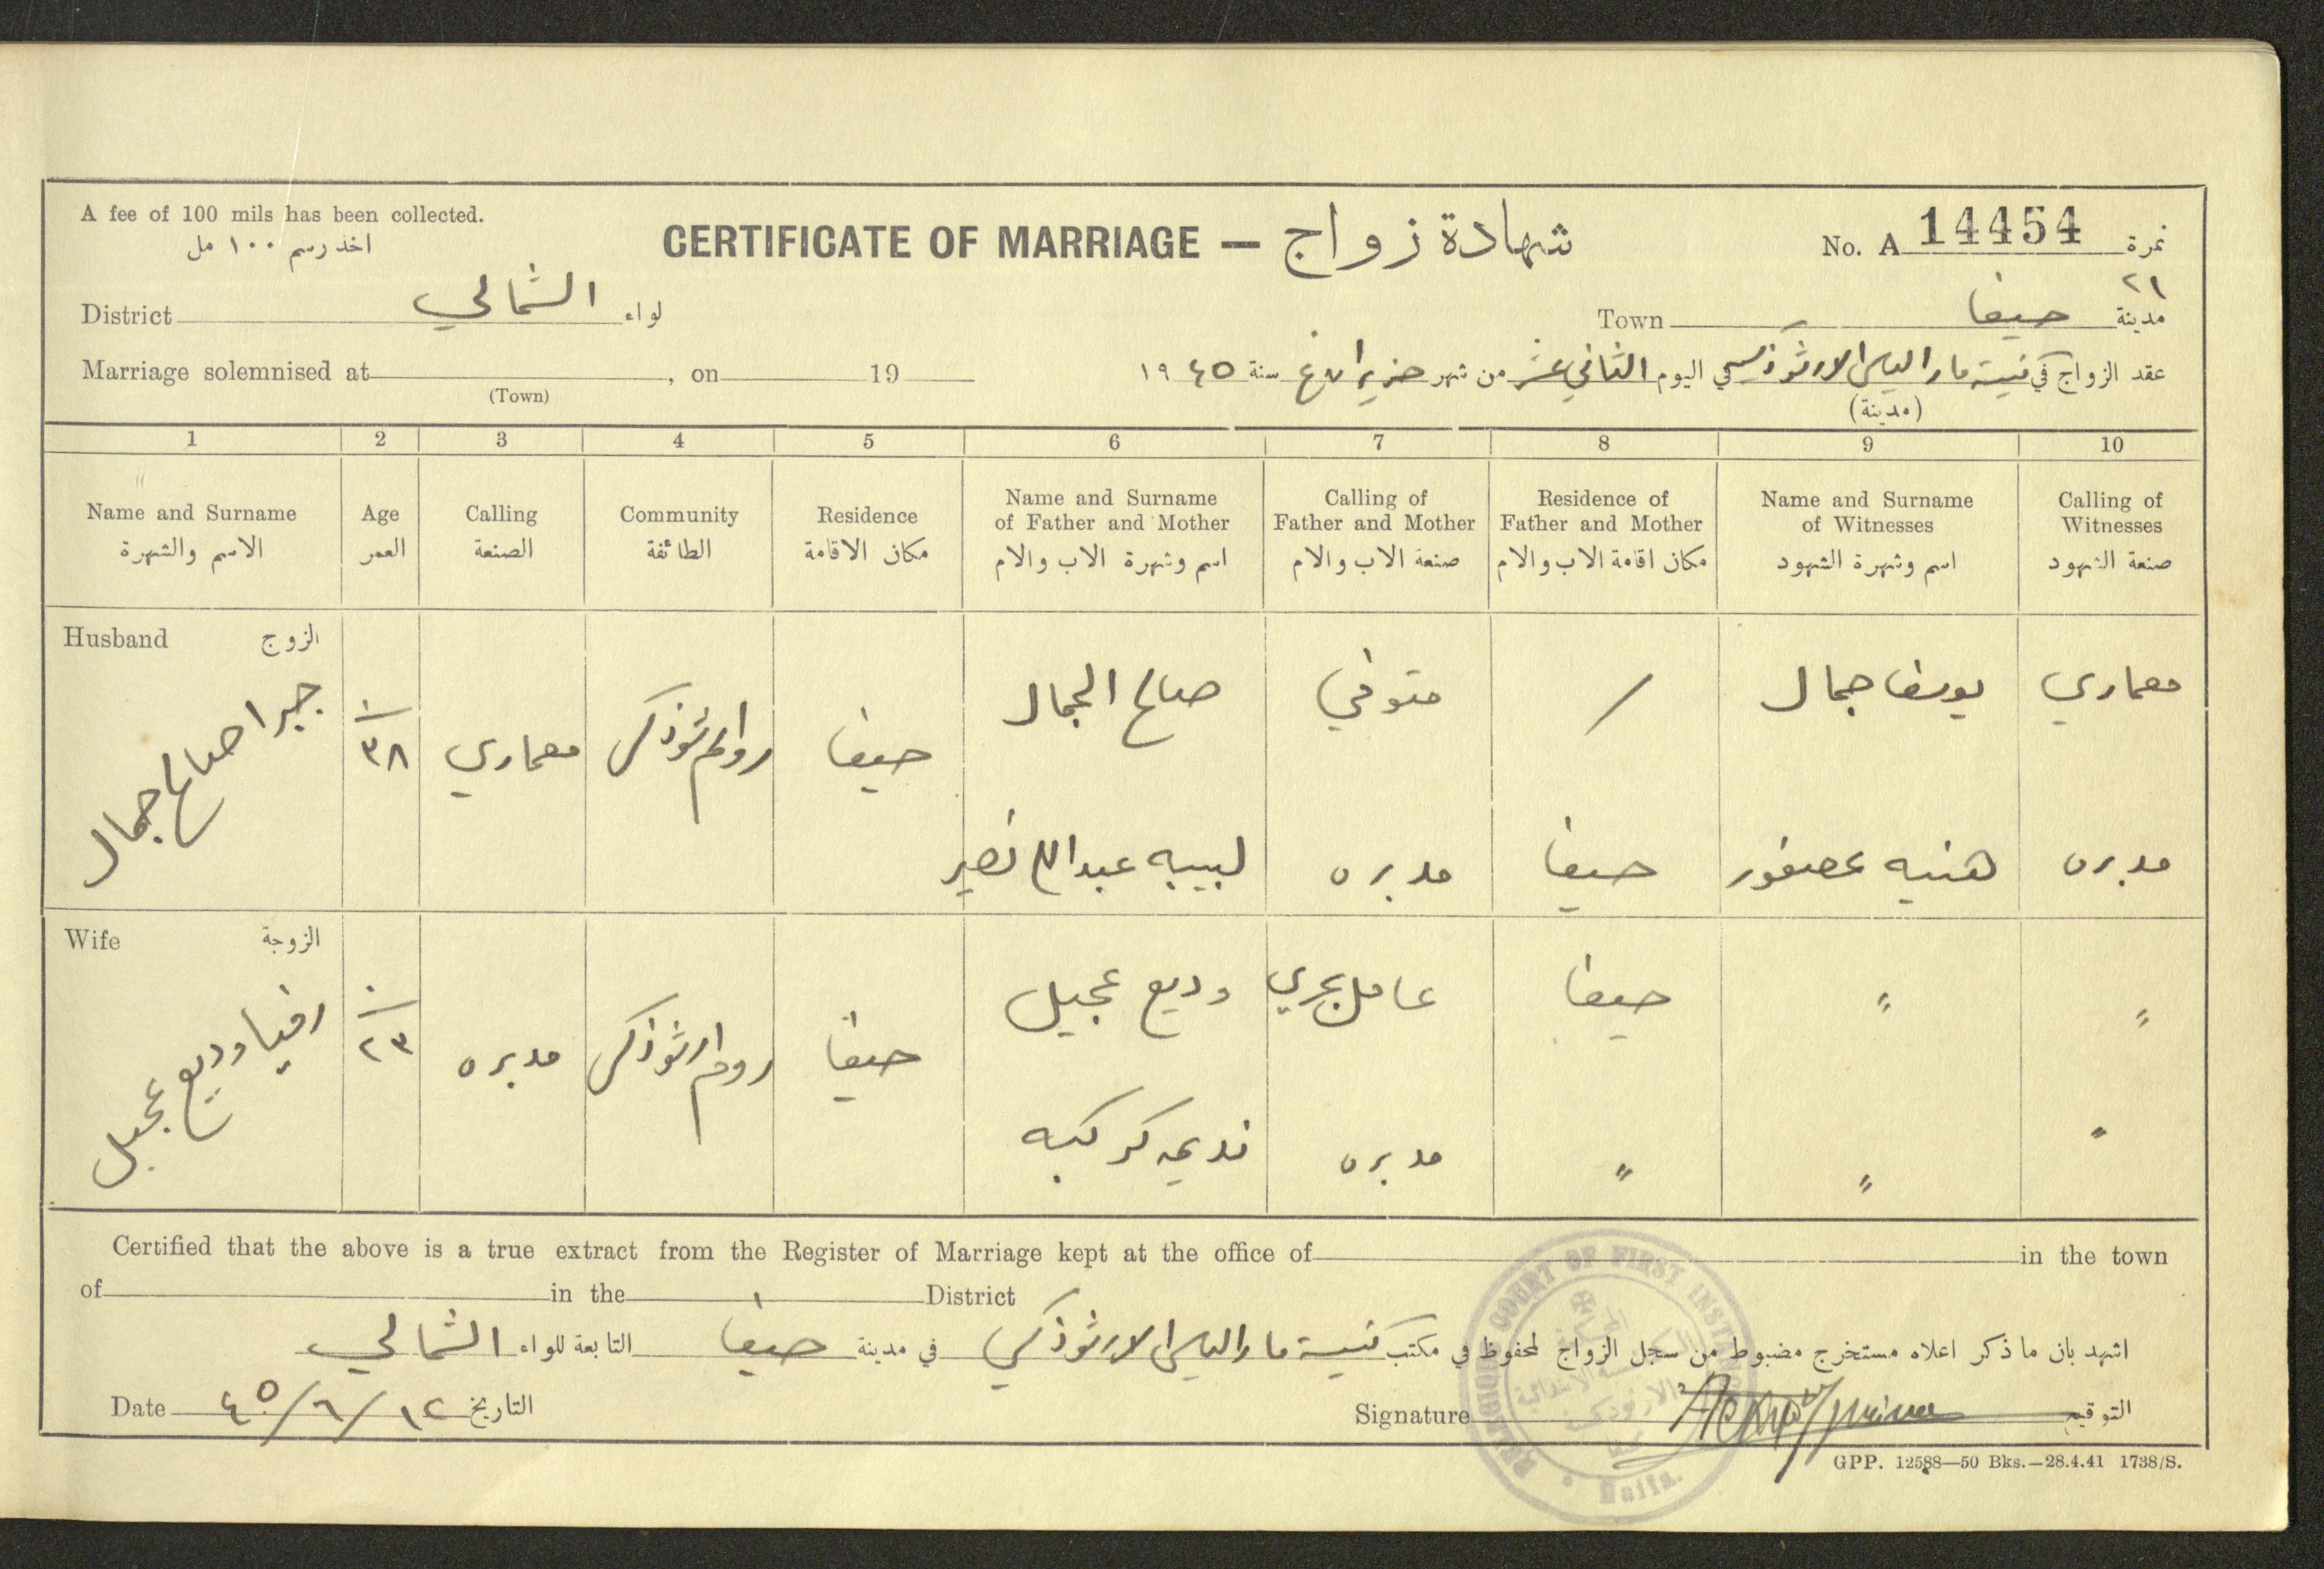 A fee of 100 mils has been collected.
اخذ رسم ١٠٠ مل
CERTIFICATE OF MARRIAGE — شهادة زواج
No. A 14454 نمرة
٢١
District الشمالي لواء
Town حيفا مدينة
Marriage solemnised at , on 19
(Town)
عقد الزواج في كنيسة مار الياس الارثوذكسي اليوم الثاني عشر من شهر حزيران سنة ١٩٤٥
(مدينة)
1 2 3 4 5 6 7 8 9 10
Name and Surname
الاسم والشهرة
Age
العمر
Calling
الصنعة
Community
الطائفة
Residence
مكان الاقامة
Name and Surname
of Father and Mother
اسم وشهرة الاب والام
Calling of
Father and Mother
صنعة الاب والام
Residence of
Father and Mother
مكان اقامة الاب والام
Name and Surname
of Witnesses
اسم وشهرة الشهود
Calling of
Witnesses
صنعة الشهود
Husband الزوج
جبرا صالح جمال
٣٨
معماري
روم ارثوذكس
حيفا
صالح الجمال
متوفي
/
يوسف جمال
معماري
لبيبه عبدالله نصير
مدبره
حيفا
هنيه عصفور
مدبره
Wife الزوجة
وديع عجيل
٢٣
مدبره
روم ارثوذكس
حيفا
وديع عجيل
عامل بحري
حيفا
〃
〃
نديمه كركبه
مدبره
〃
〃
〃
Certified that the above is a true extract from the Register of Marriage kept at the office of in the town
of in the District
اشهد بان ما ذكر اعلاه مستخرج مضبوط من سجل الزواج لمحفوظ في مكتب كنيسة مار الياس الارثوذكسي في مدينة حيفا التابعة للواء الشمالي
Date ١٢/٦/٤٥ التاريخ
Signature التوقيع
RELIGIOUS COURT OF FIRST INST
الارثوذكسية
حيفا
Haifa.
GPP. 12588—50 Bks.—28.4.41 1738/S.